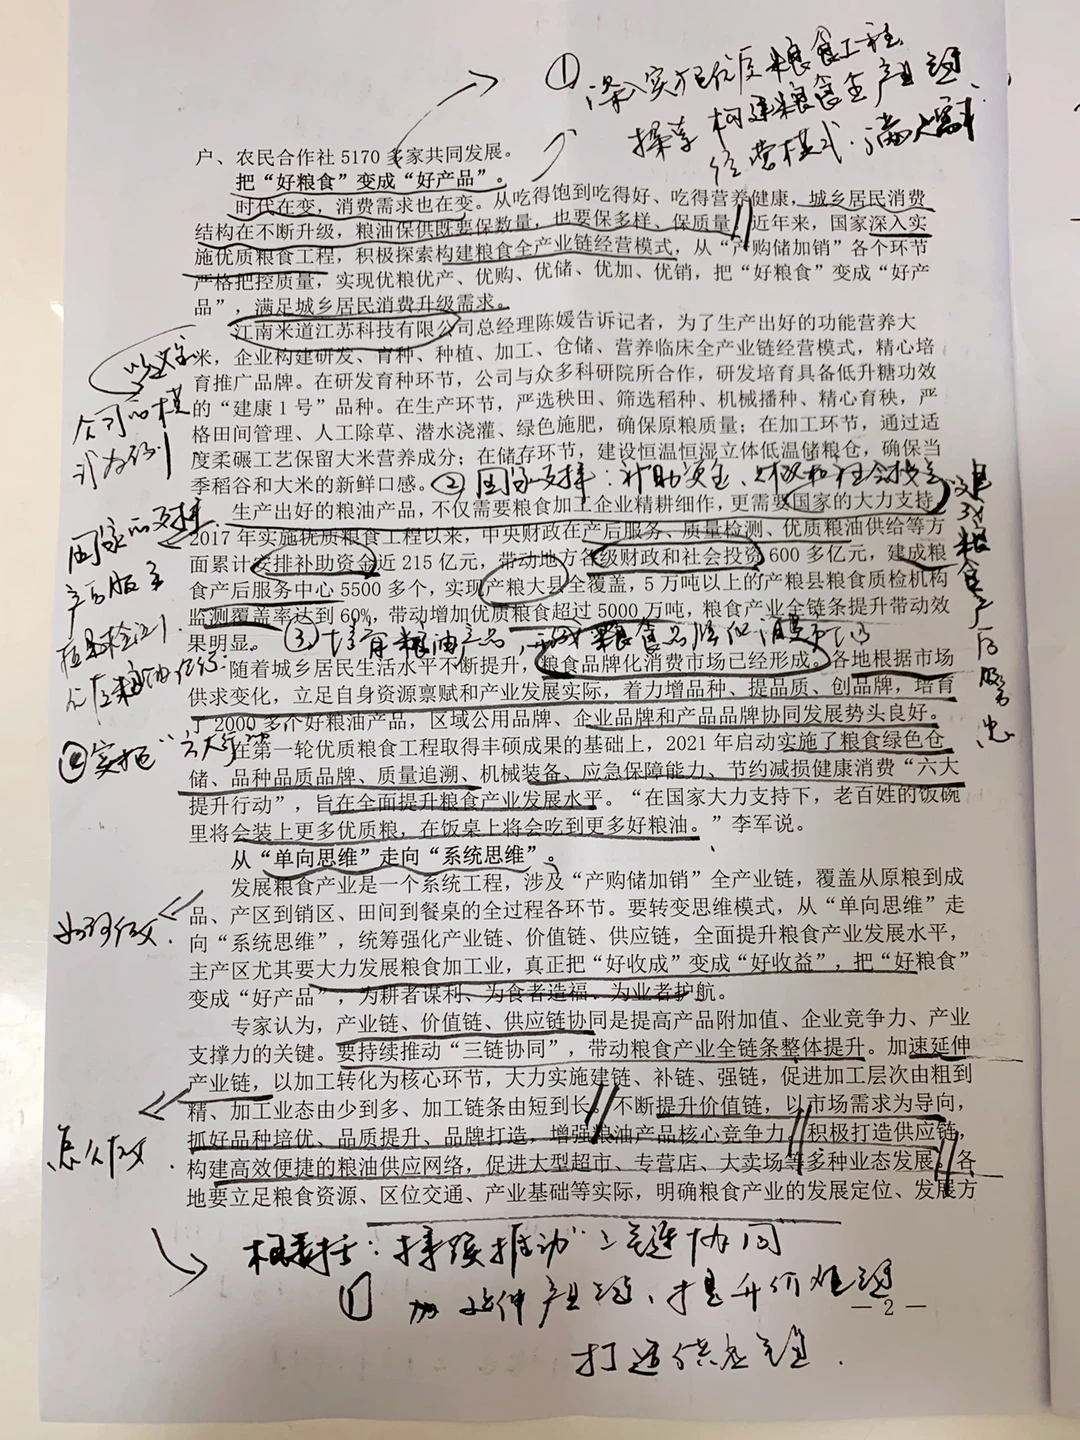 ① 深入实施优质粮食工程
探索构建粮食全产业链
经营模式.满足需求
户、农民合作社 5170 多家共同发展。
把“好粮食”变成“好产品”。
时代在变，消费需求也在变。从吃得饱到吃得好、吃得营养健康，城乡居民消费
结构在不断升级，粮油保供既要保数量，也要保多样、保质量。近年来，国家深入实
施优质粮食工程，积极探索构建粮食全产业链经营模式，从“产购储加销”各个环节
严格把控质量，实现优粮优产、优购、优储、优加、优销，把“好粮食”变成“好产
品”，满足城乡居民消费升级需求。
江南米道江苏科技有限公司总经理陈媛告诉记者，为了生产出好的功能营养大
米，企业构建研发、育种、种植、加工、仓储、营养临床全产业链经营模式，精心培
育推广品牌。在研发育种环节，公司与众多科研院所合作，研发培育具备低升糖功效
的“建康 1 号”品种。在生产环节，严选秧田、筛选稻种、机械播种、精心育秧，严
格田间管理、人工除草、潜水浇灌、绿色施肥，确保原粮质量；在加工环节，通过适
度柔碾工艺保留大米营养成分；在储存环节，建设恒温恒湿立体低温储粮仓，确保当
季稻谷和大米的新鲜口感。
公司的模
式为例
② 国家支持：补助资金、财政和社会投资
建设粮食产后服务中心
生产出好的粮油产品，不仅需要粮食加工企业精耕细作，更需要国家的大力支持。
2017 年实施优质粮食工程以来，中央财政在产后服务、质量检测、优质粮油供给等方
面累计安排补助资金近 215 亿元，带动地方各级财政和社会投资 600 多亿元，建成粮
食产后服务中心 5500 多个，实现产粮大县全覆盖，5 万吨以上的产粮县粮食质检机构
监测覆盖率达到 60%，带动增加优质粮食超过 5000 万吨，粮食产业全链条提升带动效
果明显。
国家的支持
③ 培育粮油产品
随着城乡居民生活水平不断提升，粮食品牌化消费市场已经形成。各地根据市场
供求变化，立足自身资源禀赋和产业发展实际，着力增品种、提品质、创品牌，培育
了 2000 多个好粮油产品，区域公用品牌、企业品牌和产品品牌协同发展势头良好。
④ 实施“六大行”
在第一轮优质粮食工程取得丰硕成果的基础上，2021 年启动实施了粮食绿色仓
储、品种品质品牌、质量追溯、机械装备、应急保障能力、节约减损健康消费“六大
提升行动”，旨在全面提升粮食产业发展水平。“在国家大力支持下，老百姓的饭碗
里将会装上更多优质粮，在饭桌上将会吃到更多好粮油。”李军说。
从“单向思维”走向“系统思维”。
发展粮食产业是一个系统工程，涉及“产购储加销”全产业链，覆盖从原粮到成
品、产区到销区、田间到餐桌的全过程各环节。要转变思维模式，从“单向思维”走
向“系统思维”，统筹强化产业链、价值链、供应链，全面提升粮食产业发展水平，
主产区尤其要大力发展粮食加工业，真正把“好收成”变成“好收益”，把“好粮食”
变成“好产品”，为耕者谋利、为食者造福、为业者护航。
专家认为，产业链、价值链、供应链协同是提高产品附加值、企业竞争力、产业
支撑力的关键。要持续推动“三链协同”，带动粮食产业全链条整体提升。加速延伸
产业链，以加工转化为核心环节，大力实施建链、补链、强链，促进加工层次由粗到
精、加工业态由少到多、加工链条由短到长。不断提升价值链，以市场需求为导向，
抓好品种培优、品质提升、品牌打造，增强粮油产品核心竞争力。积极打造供应链，
怎么做
构建高效便捷的粮油供应网络，促进大型超市、专营店、大卖场等多种业态发展。各
地要立足粮食资源、区位交通、产业基础等实际，明确粮食产业的发展定位、发展方
概括：持续推动“三链协同
① 加延伸产业链、提升价值链
— 2 —
打造供应链.